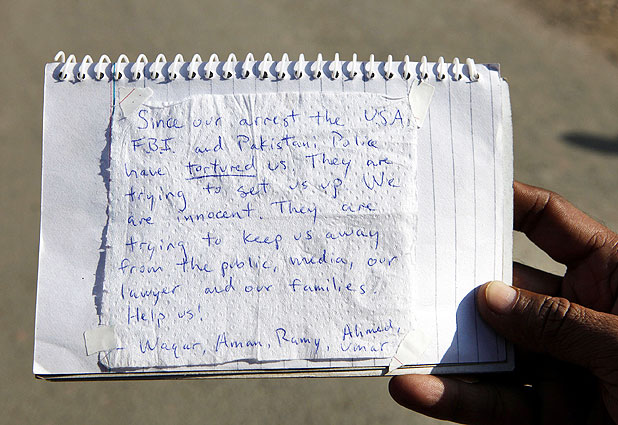 Since our arrest the U.S.A.
F.B.I. and Pakistani Police
have tortured us. They are
trying to set us up. We
are innocent. They are
trying to keep us away
from the public, media, our
lawyer and our families.
Help us!
- Waqar, Aman, Ramy, Ahmed, Umar